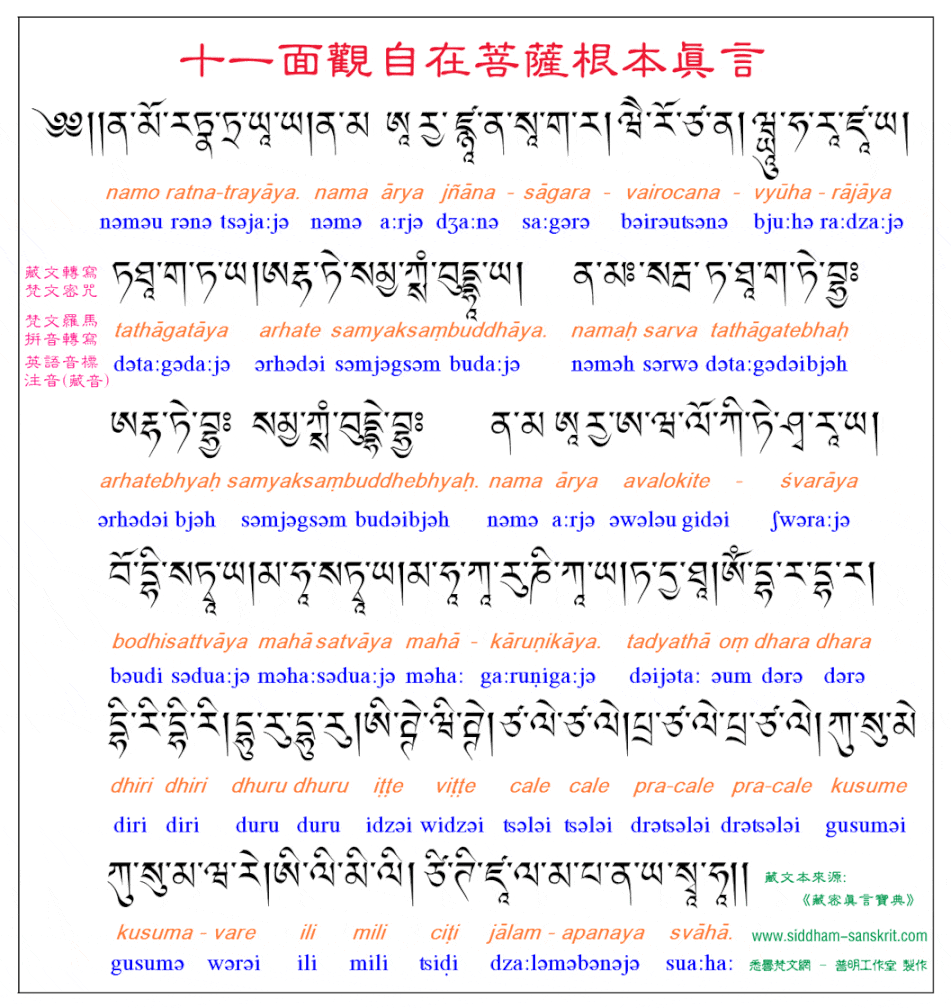 十一面觀自在菩薩根本眞言
༄༅།།ན་མོ་རཏྣ་ཏྲ་ཡཱ་ཡ།ན་མ ཨཱ་རྱ་ཛྙཱ་ན་སཱ་ག་ར།
namo ratna-trayāya. nama ārya jñāna - sāgara - vairocana - vyūha - rājāya
nəməu rənə tsəja:jə nəmə a:rjə dʒa:nə sa:gərə bəirəutsənə bju:hə ra:dza:jə
藏文轉寫
梵文密咒
ཏ་ཐཱ་ག་ཏ་ཡ།ཨརྷ་ཏེ་སམྱ་ཀྶཾ་བུདྡྷཱ་ཡ། ན་མཿ་སརྦ་ཏ་ཐཱ་ག་ཏེ་བྷྱཿ
梵文羅馬
拼音轉寫
tathāgatāya arhate samyaksaṃbuddhāya. namaḥ sarva tathāgatebhaḥ
英語音標
注音(藏音)
dəta:gəda:jə ərhədəi səmjəgsəm buda:jə nəməh sərwə dəta:gədəibjəh
ཨརྷ་ཏེ་བྷྱཿ སམྱ་ཀྶཾ་བུདྡྷེ་བྷྱཿ ན་མ ཨཱ་རྱ་ཨ་ཝ་ལོ་ཀི་ཏེ་ཤྭ་རཱ་ཡ།
arhatebhyaḥ samyaksaṃbuddhebhyaḥ. nama ārya avalokite - śvarāya
ərhədəi bjəh səmjəgsəm budəibjəh nəmə a:rjə əwələu gidəi ʃwəra:jə
བོ་དྷི་སཏྭཱ་ཡ།མ་ཧཱ་སཏྭཱ་ཡ།མ་ཧཱ་ཀཱ་རུ་ཎི་ཀཱ་ཡ།ཏ་དྱ་ཐཱ།ཨོཾ་དྷ་ར་དྷ་ར།
bodhisattvāya mahā satvāya mahā - kāruṇikāya. tadyathā oṃ dhara dhara
bəudi sədua:jə məha:sədua:jə məha: ga:ruṇiga:jə dəijəta: əum dərə dərə
དྷི་རི་དྷི་རི།དྷུ་རུ་དྷུ་རུ།ཨི་ཊྚེ་ཝི་ཊྚེ།ཙ་ལེ་ཙ་ལེ།པྲ་ཙ་ལེ་པྲ་ཙ་ལེ།ཀུ་སུ་མེ
dhiri dhiri dhuru dhuru iṭṭe viṭṭe cale cale pra-cale pra-cale kusume
diri diri duru duru idzəi widzəi tsələi tsələi drətsələi drətsələi gusuməi
ཀུ་སུ་མ་ཝ་རེ།ཨི་ལི་མི་ལི། ཙི་ཊི་ཛཱ་ལ་མ་པ་ན་ཡ་སྭཱ་ཧཱ།།
藏文本來源:
《藏密眞言寶典》
kusuma - vare ili mili ciṭi jālam - apanaya svāhā.
www.siddham-sanskrit.com
gusumə wərəi ili mili tsiḍi dza:ləməbənəjə sua:ha:
悉曇梵文網 - 普明工作室 製作